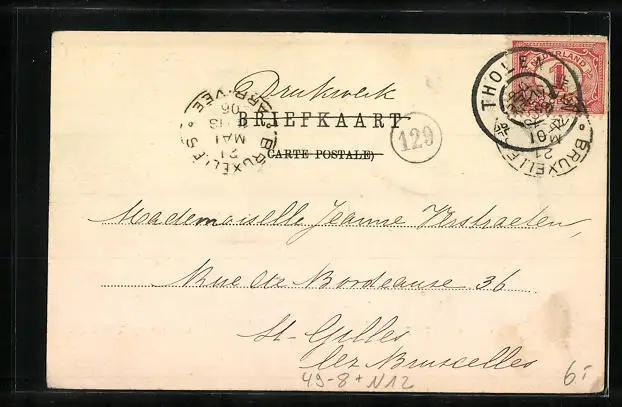 Drukwerk
BRIEFKAART
(CARTE POSTALE)
129
NEDERLAND
1
THOLEN
BRUXELLES
21
MAI
06
ARRIVEE
BRUXELLES
21
Mademoiselle Jeanne
Rue de Bordeaux 36
St-Gilles
lez Bruxelles
49-8 + N12
6.-